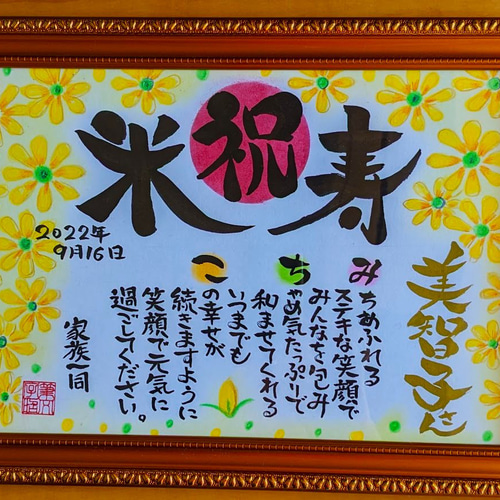 米祝寿
2022年
9月16日
美智子さん
みちあふれる
ステキな笑顔で
みんなを包み
ちゃめ気たっぷりで
和ませてくれる
いつまでも
この幸せが
続きますように
笑顔で元気に
過ごしてください。
家族一同